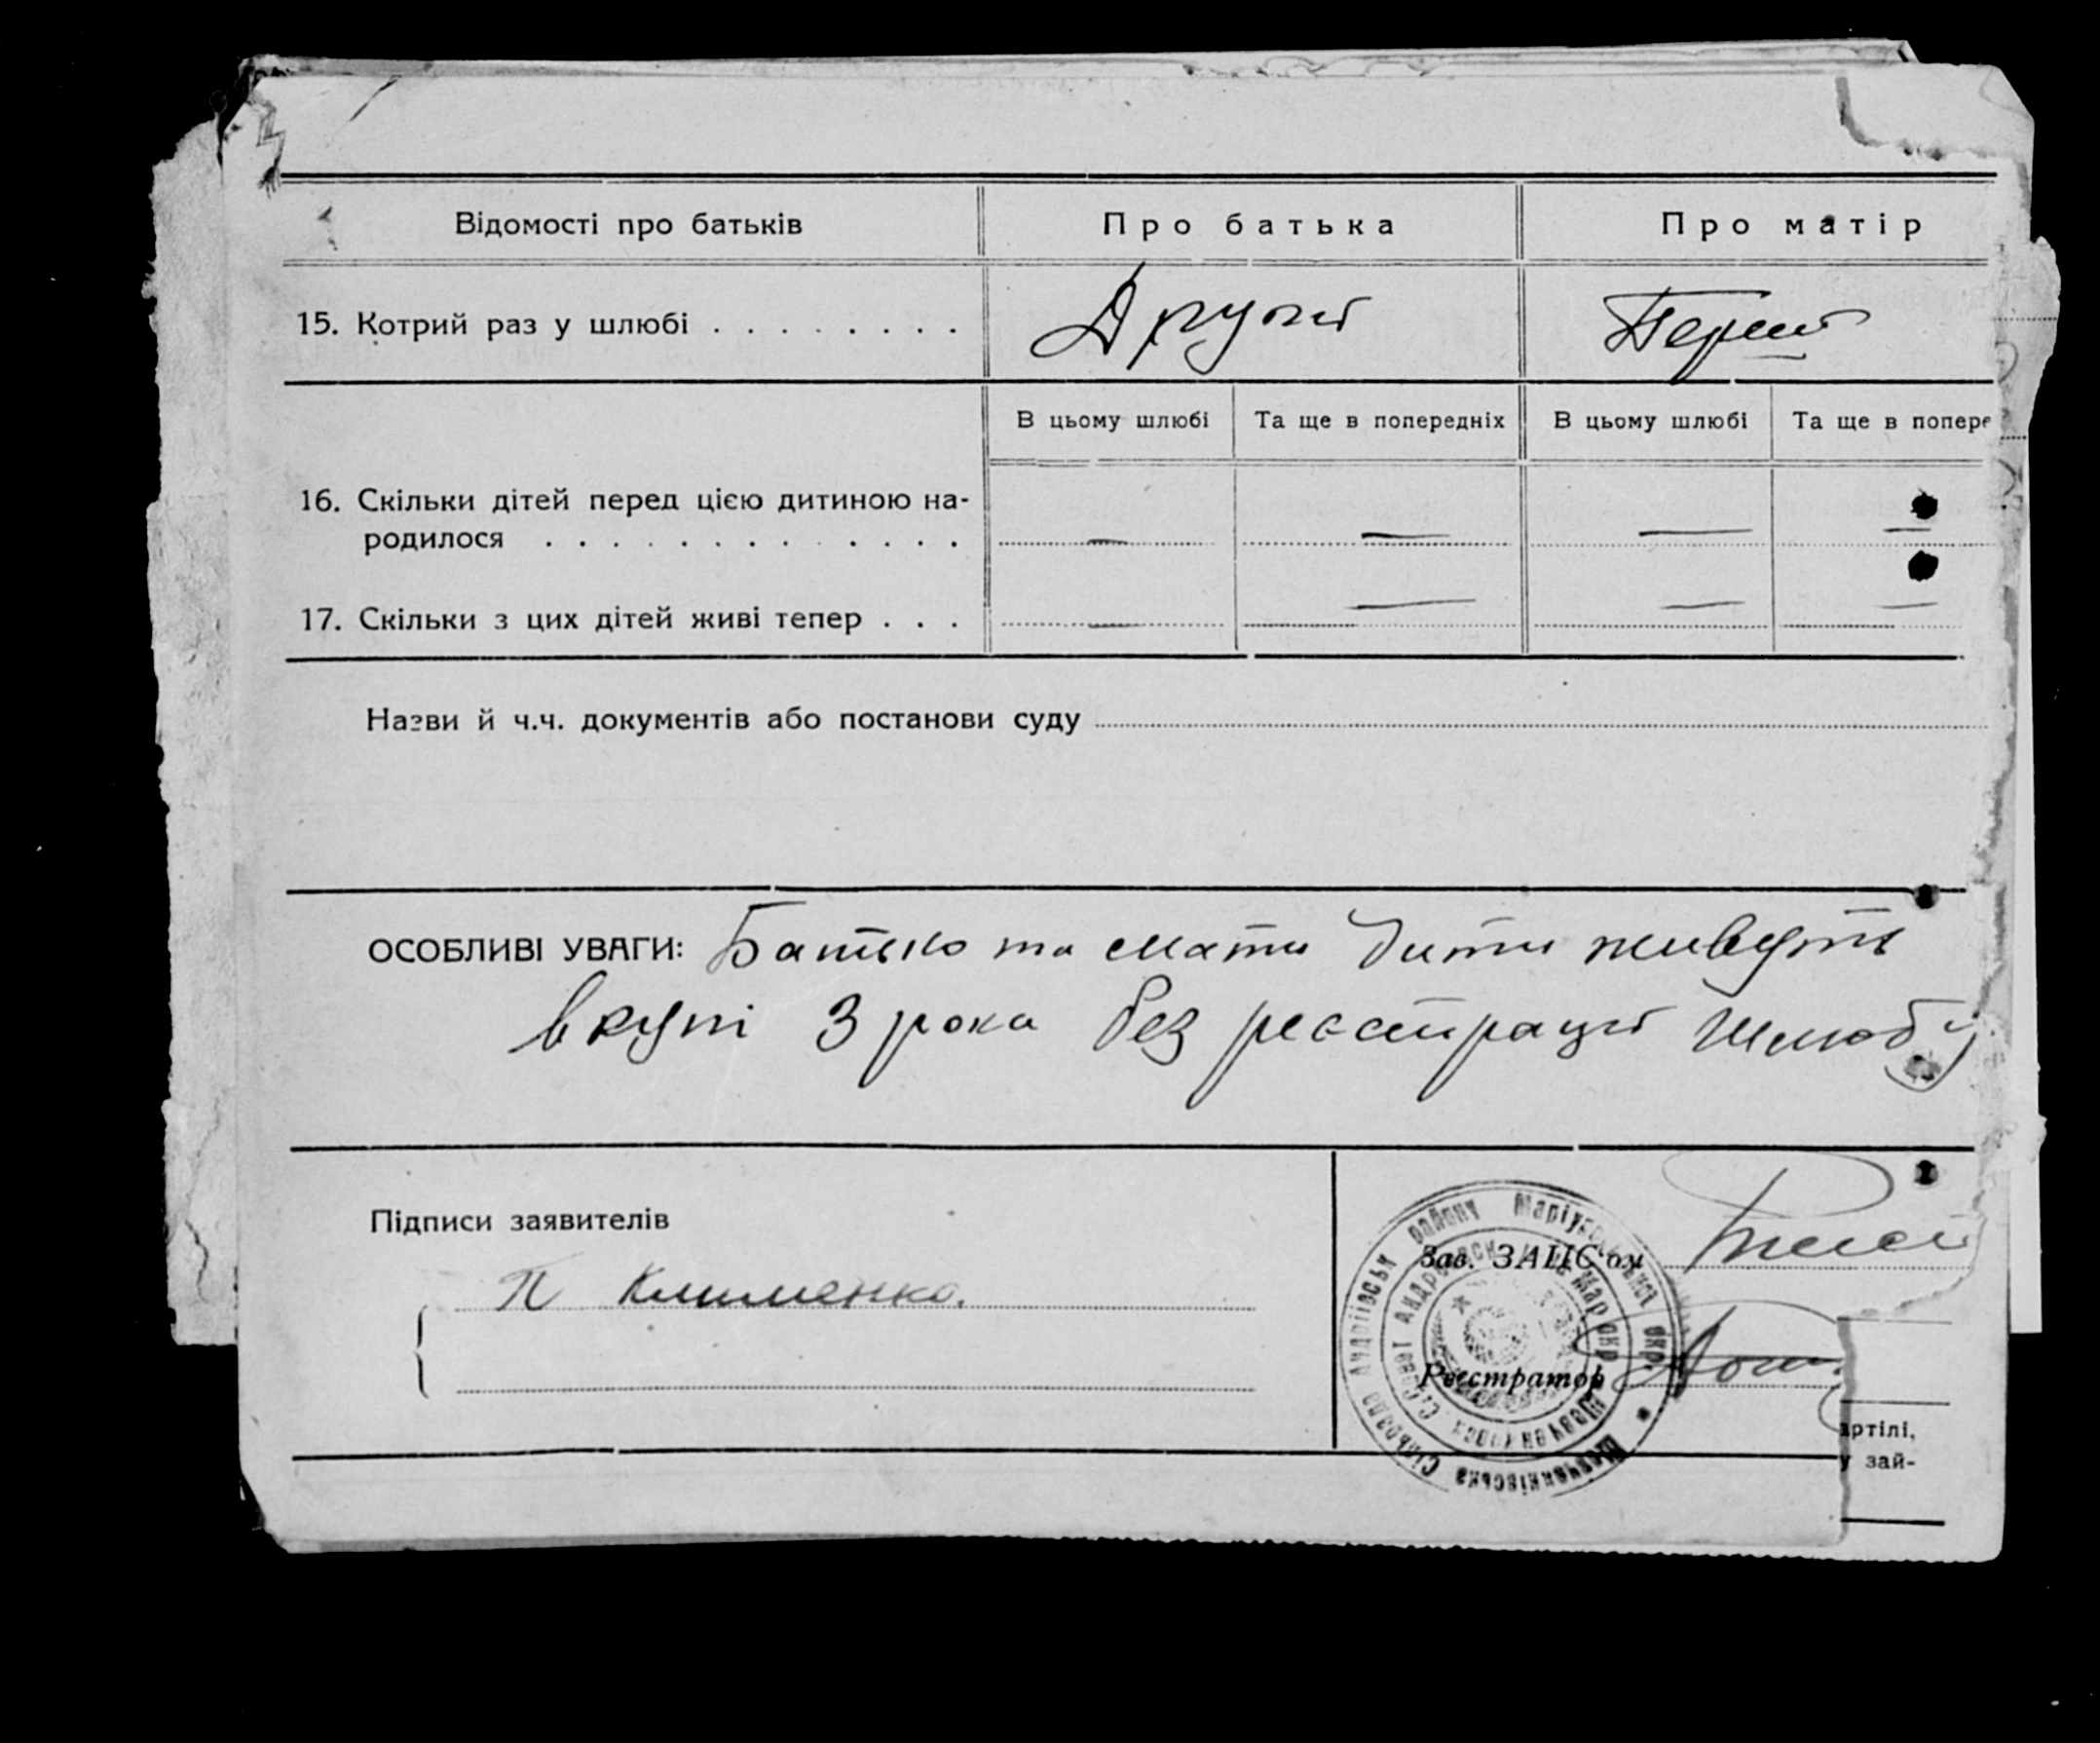 Відомості про батьків
Про батька
Про матір
15. Котрий раз у шлюбі . . . . . . . .
Другий
Перший
В цьому шлюбі
Та ще в попередніх
В цьому шлюбі
Та ще в попере
16. Скільки дітей перед цією дитиною на-
родилося . . . . . . . . . . . . .
— — — —
17. Скільки з цих дітей живі тепер . . .
— — — —
Назви й ч.ч. документів або постанови суду
ОСОБЛИВІ УВАГИ: Батько та мати дити живуть
вкупі 3 рока без реєстрації шлюбу
Підписи заявителів
П Клименко.
Зав. ЗАЦС'ом
Реєстратор
Шевченківська Сільрада Андріївськ району Маріупольської окр.
артілі,
у зай-